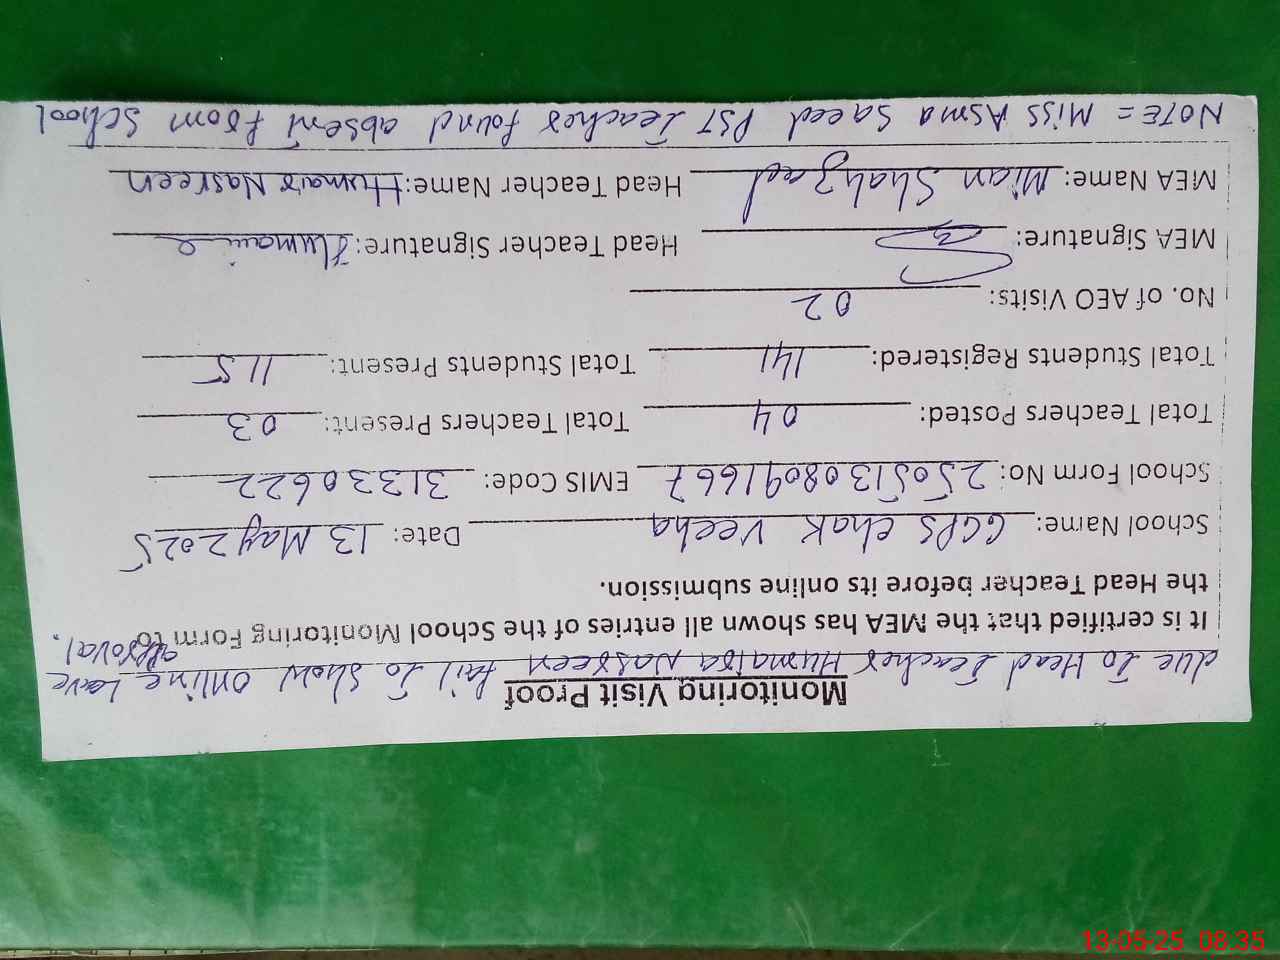 Monitoring Visit Proof
due To Head Teacher Humaira Nasreen fail To Show Online Leave
approval.
It is certified that the MEA has shown all entries of the School Monitoring Form to
the Head Teacher before its online submission.
School Name: GGPS Chak Veeha Date: 13 May 2025
School Form No: 250513080916667 EMIS Code: 31330622
Total Teachers Posted: 04 Total Teachers Present: 03
Total Students Registered: 141 Total Students Present: 115
No. of AEO Visits: 02
MEA Signature: Head Teacher Signature: Humaira
MEA Name: Mian Shahzad Head Teacher Name: Humaira Nasreen
NOTE = Miss Asma Saeed PST Teacher found absent from School
13-05-25 08:35